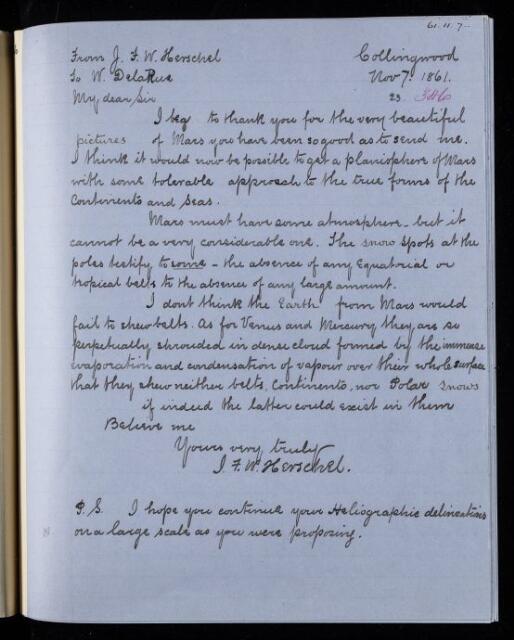 61.11.7
From J. F. W. Herschel
Collingwood
To W. DelaRue
Nov 7. 1861.
My dear Sir
23
I beg to thank you for the very beautiful
pictures of Mars you have been so good as to send me.
I think it would now be possible to get a planisphere of Mars
with some tolerable approach to the true forms of the
Continents and Seas.
Mars must have some atmosphere - but it
cannot be a very considerable one. The snow spots at the
poles testify to some - the absence of any Equatorial or
tropical belts to the absence of any large amount.
I dont think the Earth from Mars would
fail to shew belts. As for Venus and Mercury they are so
perpetually shrouded in dense cloud formed by the immense
evaporation and condensation of vapour over their whole surface
that they shew neither belts, Continents, nor Polar snows
if indeed the latter could exist in them
Believe me
Yours very truly
J. F. W. Herschel.
P.S. I hope you continue your Heliographic delineations
on a large scale as you were proposing.